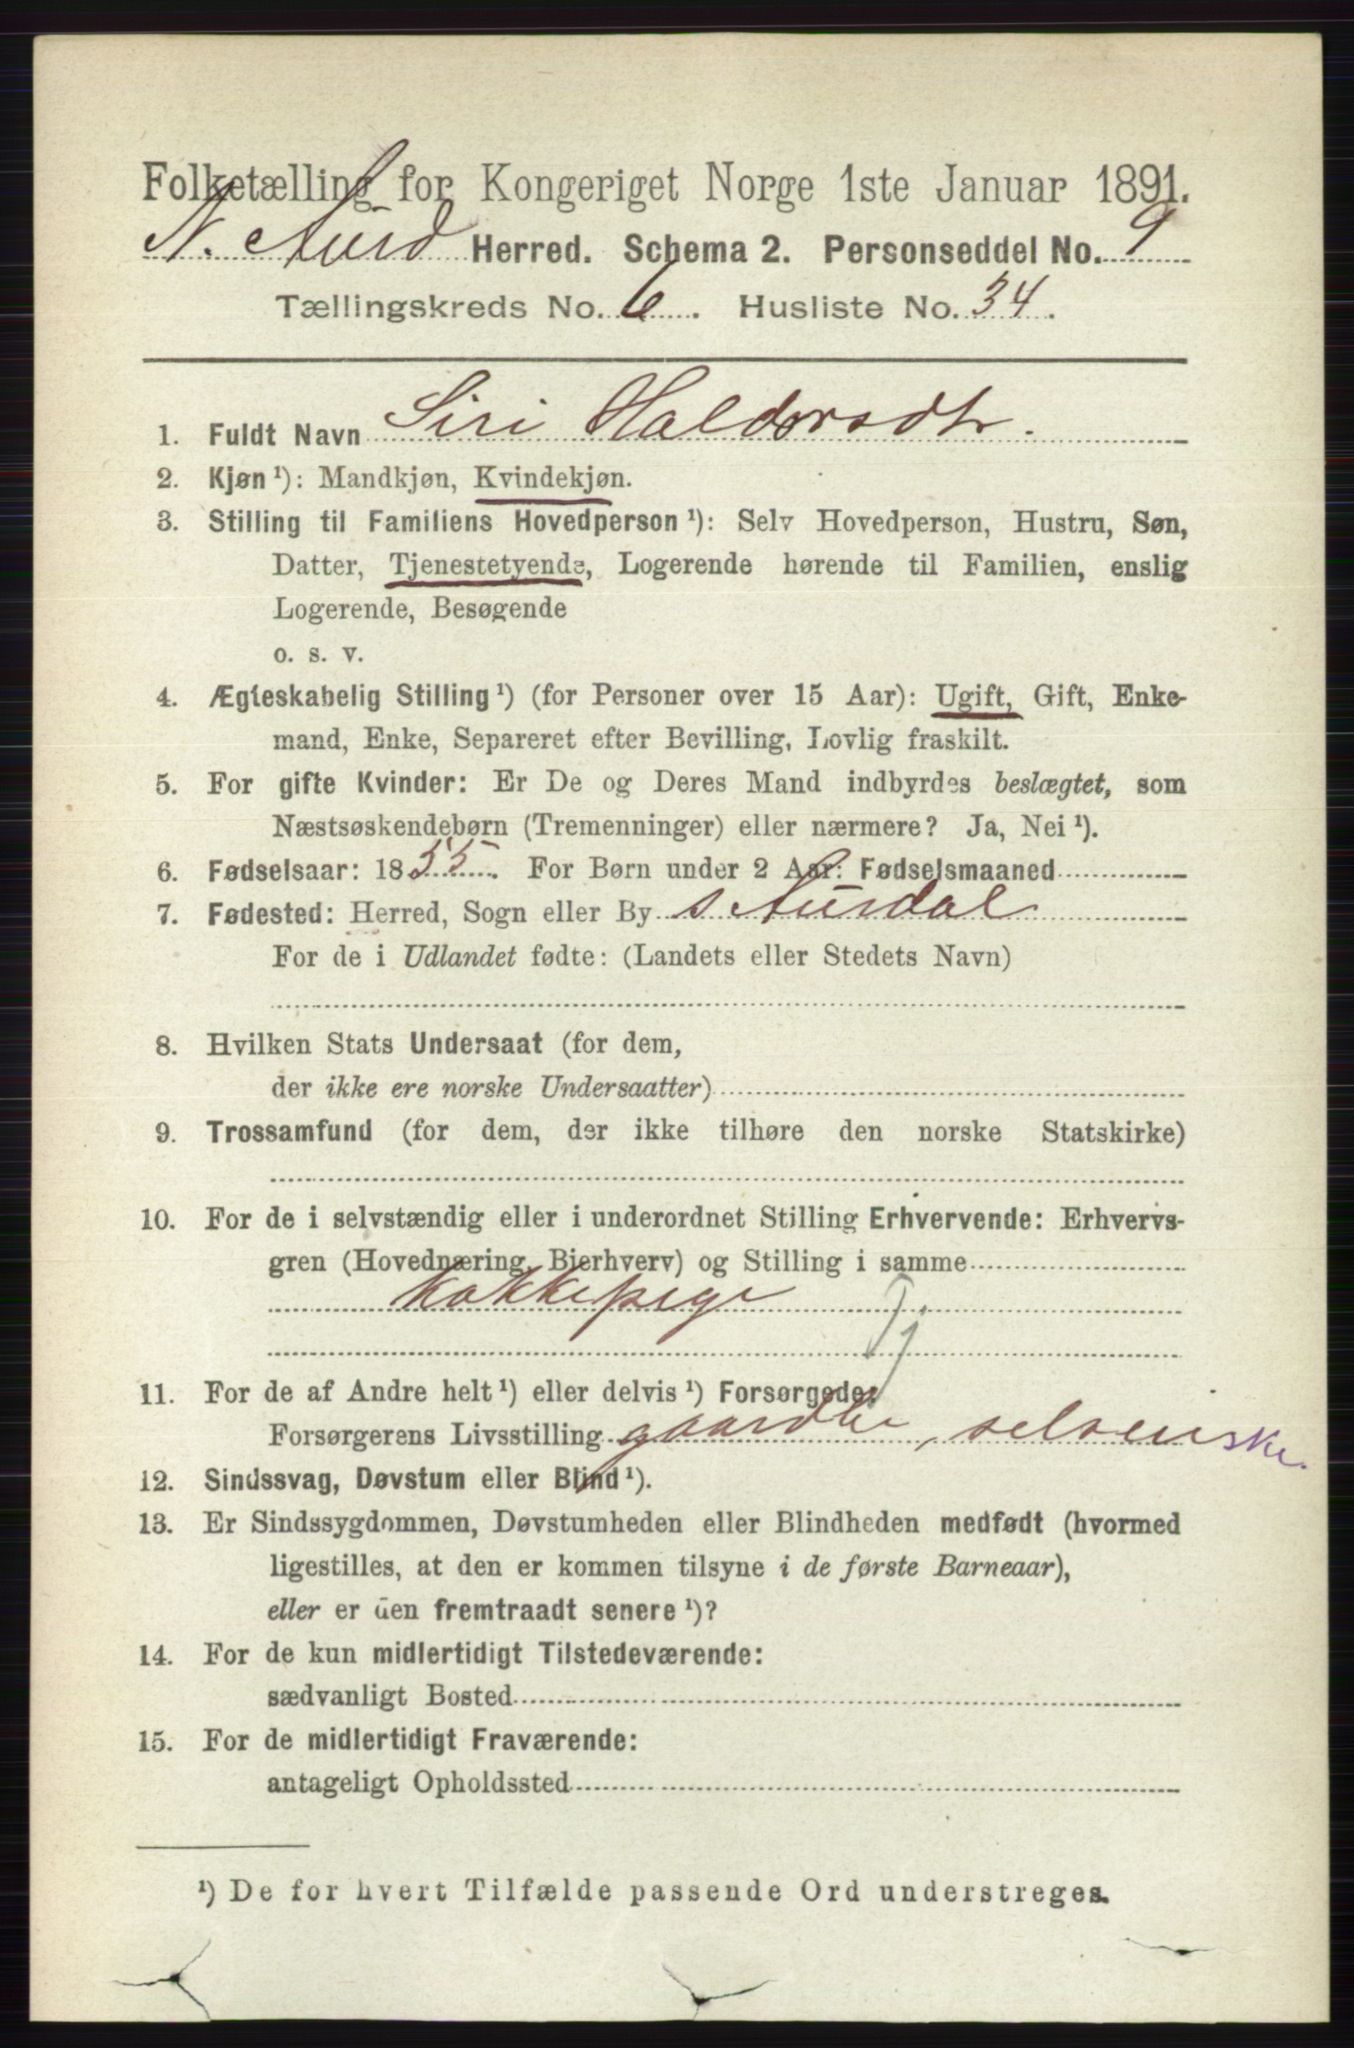 Folketælling for Kongeriget Norge 1ste Januar 1891.
N. Aurd Herred. Schema 2. Personseddel No. 9
Tællingskreds No. 6. Husliste No. 34.
1. Fuldt Navn Siri Haldorsdtr.
2. Kjøn ¹): Mandkjøn, Kvindekjøn.
3. Stilling til Familiens Hovedperson ¹): Selv Hovedperson, Hustru, Søn,
Datter, Tjenestetyende, Logerende hørende til Familien, enslig
Logerende, Besøgende
o. s. v.
4. Ægteskabelig Stilling ¹) (for Personer over 15 Aar): Ugift, Gift, Enke-
mand, Enke, Separeret efter Bevilling, Lovlig fraskilt.
5. For gifte Kvinder: Er De og Deres Mand indbyrdes beslægtet, som
Næstsøskendebørn (Tremenninger) eller nærmere? Ja, Nei ¹).
6. Fødselsaar: 1855. For Børn under 2 Aar: Fødselsmaaned
7. Fødested: Herred, Sogn eller By s Aurdal
For de i Udlandet fødte: (Landets eller Stedets Navn)
8. Hvilken Stats Undersaat (for dem,
der ikke ere norske Undersaatter)
9. Trossamfund (for dem, der ikke tilhøre den norske Statskirke)
10. For de i selvstændig eller i underordnet Stilling Erhvervende: Erhvervs-
gren (Hovednæring, Bierhverv) og Stilling i samme
Kokkepige
11. For de af Andre helt ¹) eller delvis ¹) Forsørgede:
Forsørgerens Livsstilling gaardbr, selveiske.
12. Sindssvag, Døvstum eller Blind ¹).
13. Er Sindssygdommen, Døvstumheden eller Blindheden medfødt (hvormed
ligestilles, at den er kommen tilsyne i de første Barneaar),
eller er den fremtraadt senere ¹)?
14. For de kun midlertidigt Tilstedeværende:
sædvanligt Bosted
15. For de midlertidigt Fraværende:
antageligt Opholdssted
¹) De for hvert Tilfælde passende Ord understreges.